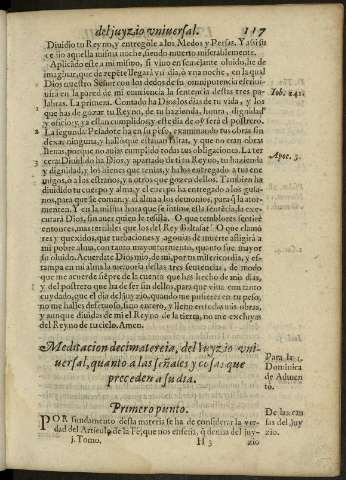 del juyzio vniuersal. 117
Diuidio tu Reyno, y entregòle a los Medos y Persas. Y assi su
cedio aquella misma noche, siendo muerto miserablemente.
Aplicado este a mi mismo, si viuo en semejante oluido, he de
imaginar, que de repẽte llegarà vn dia, ò vna noche, en la qual
Dios nuestro Señor con los dedos de su omnipotencia
en la pared de mi conciencia la sentencia destas tres pa-
labras. La primera. Contado ha Dios los dias de tu vida, y los
Iob. 14.
que has de gozar tu Reyno, de tu hazienda, honra, dignidad
y oficio; y ya estan cumplidos, y este dia de ser el postrero.
2 La segunda. Pesadote ha en su peso, examinando tus obras sin
dexar ninguna, y halló que estauan faltas, y que no eran obras
llenas, porque no auias cumplido todas tus obligaciones. La ter
Apoc. 3.
3 cera. Diuidido ha Dios, y apartado de ti tu Reyno, tu hazienda
y dignidad, y los bienes que tenias, y halos entregado a tus ene
migos, ò a los estraños, y a otros que gozen dellos. Tambien ha
diuidido tu cuerpo y alma, y el cuerpo ha entregado a los gusa-
nos, para que se coman, y el alma a los demonios, para q̃ la ator-
menten. Y en la misma hora que se intime, esta sentẽcia, la exe-
cutarà Dios, sin auer quien le resista. O que temblores sentirè
entonces, mas terribles que los del Rey Baltasar! O que clamo
res y quexidos, que turbacion y agonias de muerte afligirà a
mi pobre alma, con tanto mayor tormento, quanto fue mayor
su oluido. Acuerdate Dios mio, de mi, por tu misericordia, y es-
tampa en mi alma la memoria destas tres sentencias, de modo
que me acuerde siẽpre de la cuenta que has hecho de mis dias,
y del postrero que ha de ser sin dellos, para que viua con tanto
cuydado, que el dia del juyzio, quando me pusieres en tu peso,
no me halles defectuoso, sino entero, y lleno en todas mis obras,
y aunque diuidas de mi el Reyno de la tierra, no me excluyas
del Reyno de tu cielo. Amen.
Meditacion decimatercia, del Iuyzio vni-
uersal, quanto a las señales y cosas que
preceden a su dia.
Para la 1.
Dominica
de Aduen
to.
Primero punto.
POR fundamento desta materia se ha de considerar la ver-
dad del Articulo de la Fè, que nos enseña, q̃ demas del juy-
De las cau
sas del Juy
zio.
j. Tomo. H 3 zio